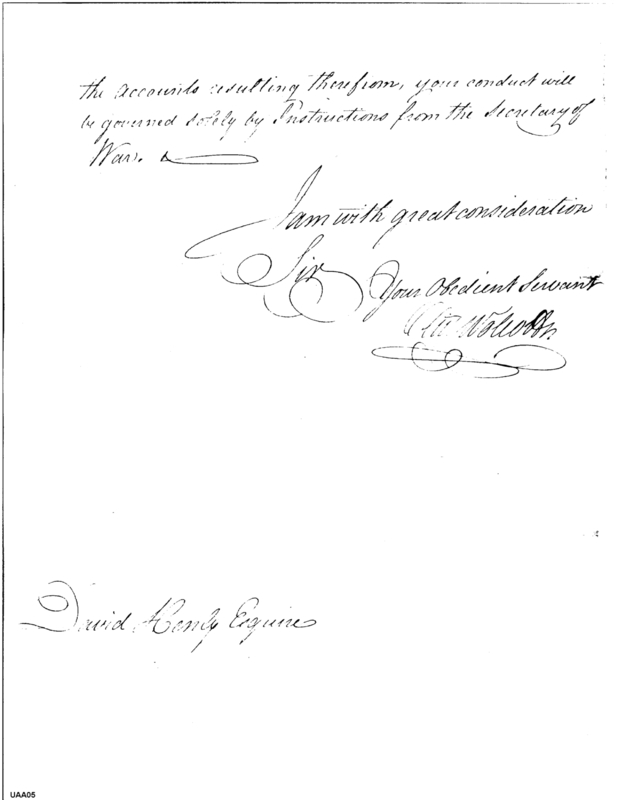 the accounts resulting therefrom, your conduct will
be governed solely by Instructions from the Secretary of
War.
I am with great consideration
Sir
Your Obedient Servant
Oliv Wolcott
David Henly Esquire
UAA05